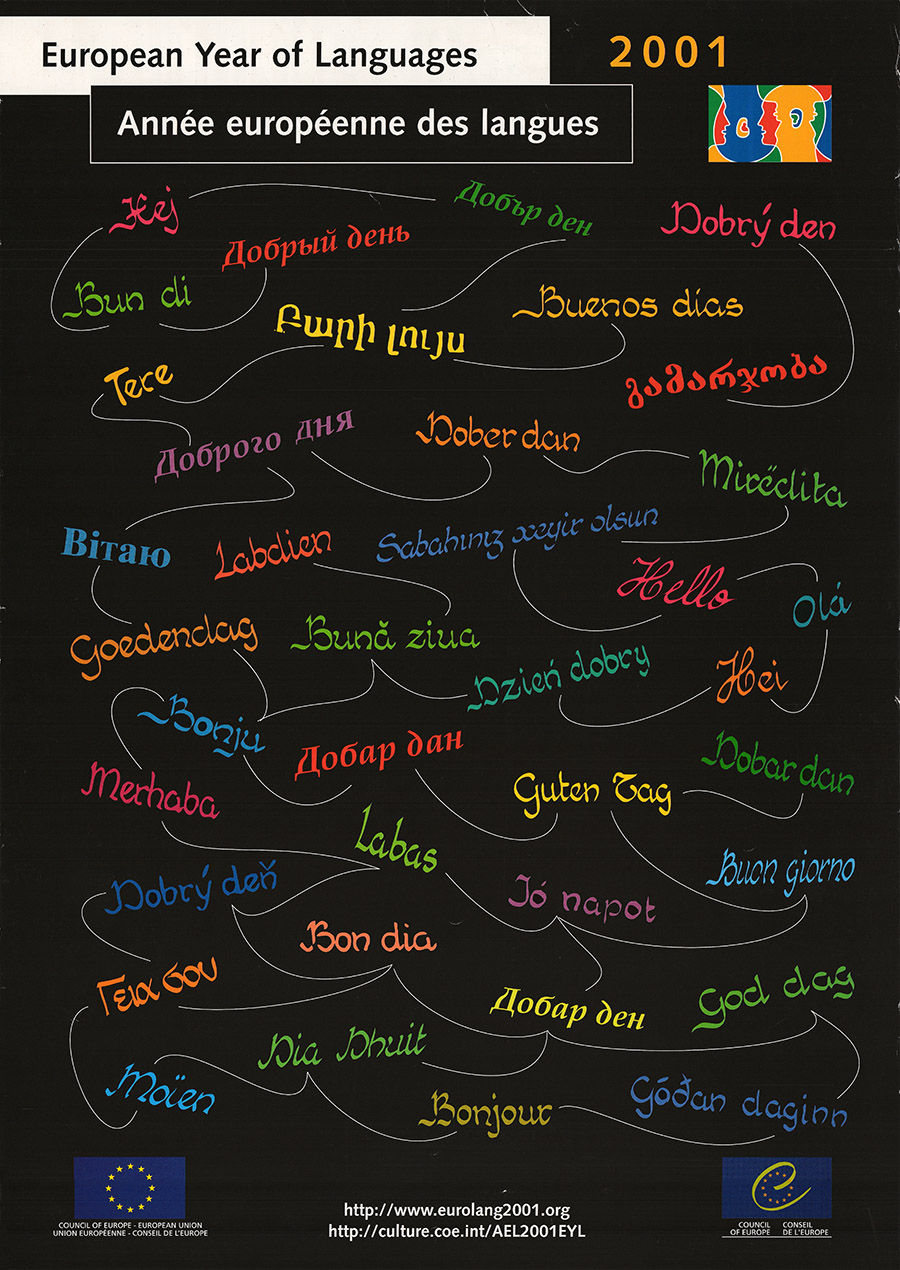 European Year of Languages
2001
Année européenne des langues
Hej
Добър ден
Dobrý den
Добрый день
Bun di
Buenos días
Բարի լույս
Tere
გამარჯობა
Доброго дня
Dober dan
Mirëdita
Вітаю
Labdien
Sabahınız xeyir olsun
Hello
Olá
Goedendag
Bună ziua
Dzień dobry
Hei
Bonju
Добар дан
Dobar dan
Merhaba
Guten Tag
Labas
Buon giorno
Dobrý deň
Jó napot
Bon dia
Γεια σου
Добар ден
God dag
Dia Dhuit
Moïen
Bonjour
Góðan daginn
COUNCIL OF EUROPE - EUROPEAN UNION
UNION EUROPÉENNE - CONSEIL DE L'EUROPE
http://www.eurolang2001.org
http://culture.coe.int/AEL2001EYL
COUNCIL CONSEIL
OF EUROPE DE L'EUROPE